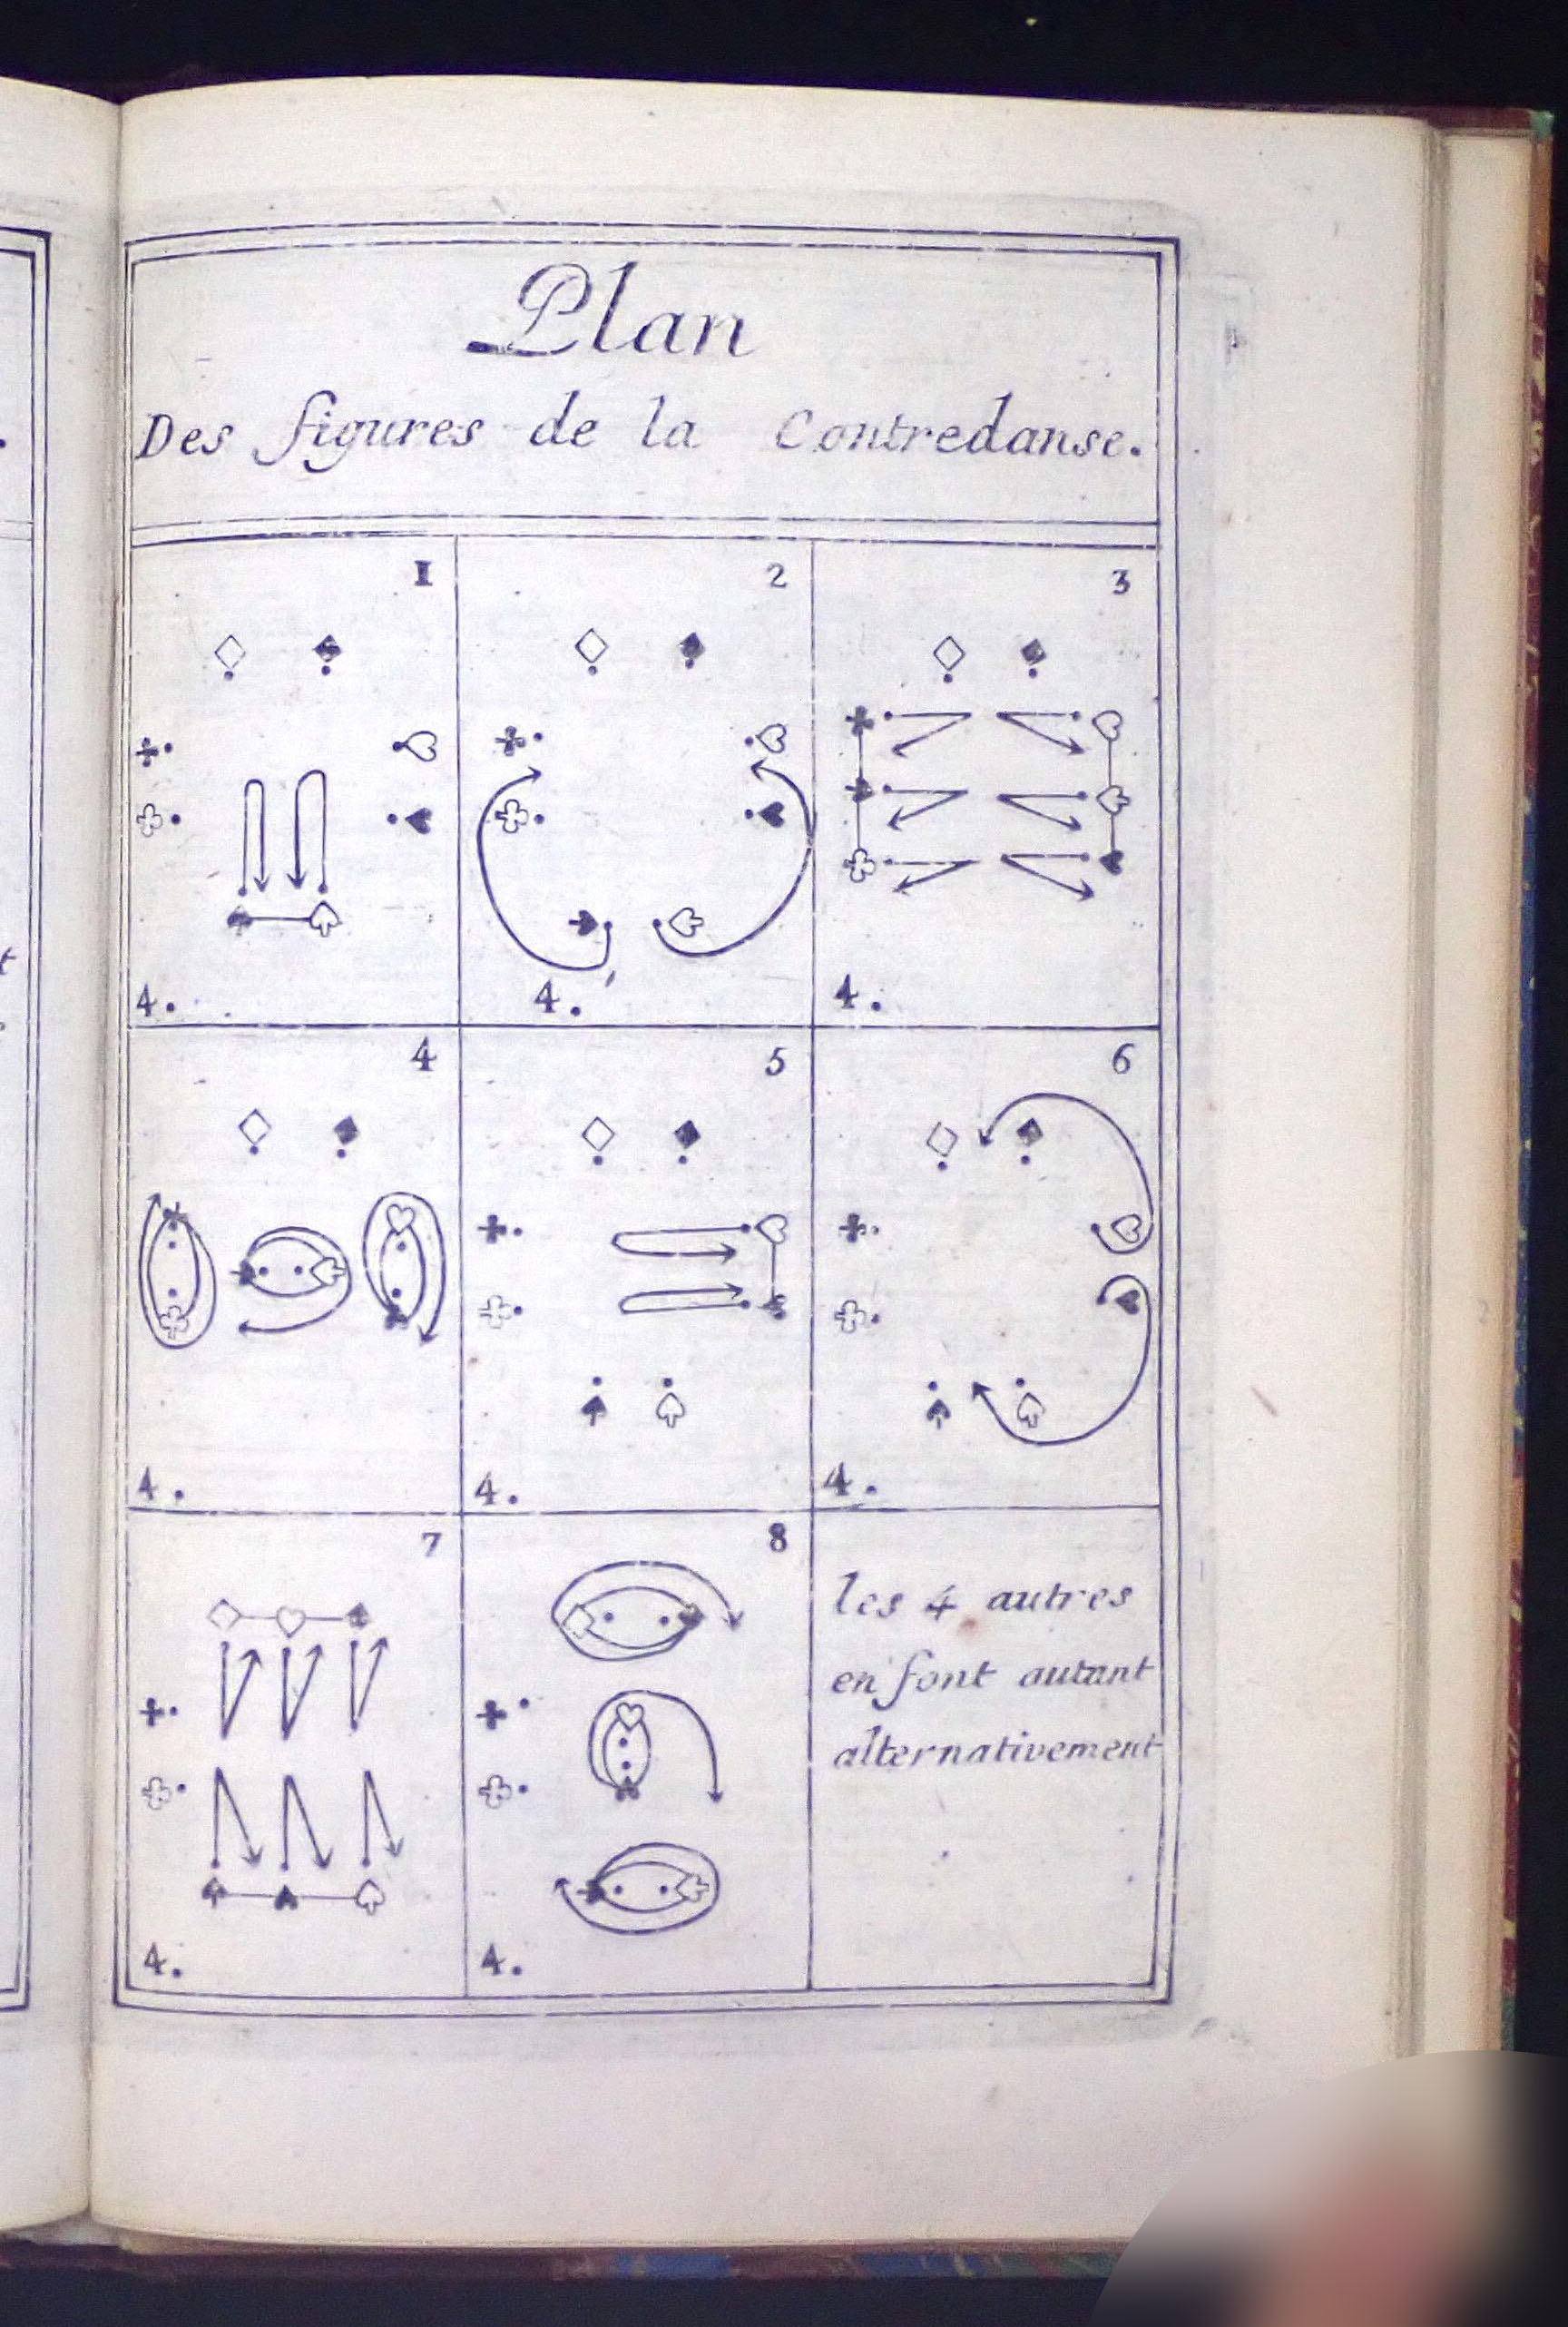 Plan
Des figures de la Contredanse.
1
2
3
4.
4.
4.
4
5
6
4.
4.
4.
7
8
les 4 autres
en font autant
alternativement
4.
4.